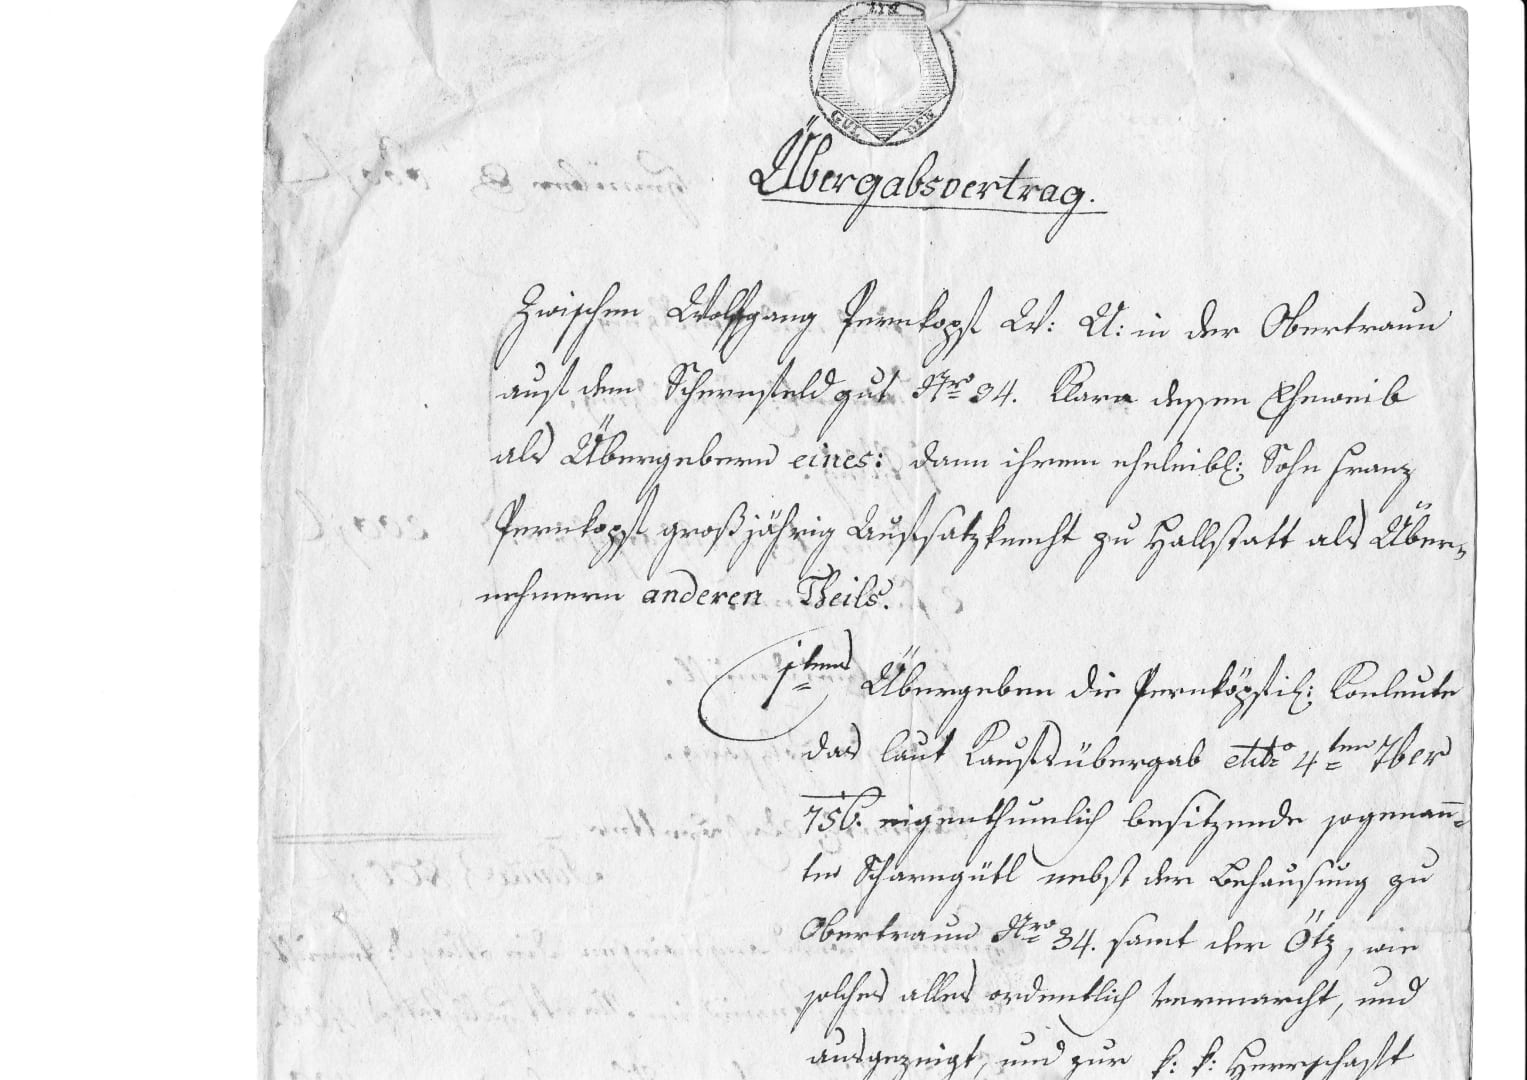 GUL DEN
Übergabsvertrag.
Zwischen Wolfgang Pernkopf W: U: in der Obertraun
auf dem Schernfeldgut Nro 34. Klara dessen Eheweib
als Übergebern eines: dann ihrem eheleibl: Sohn Franz
Pernkopf großjährig Aufsatzknecht zu Hallstatt als Über=
nehmern anderen Theils.
1tens Übergeben die Pernköpfil: Konleute
das laut Kaufsübergab 4ten 7ber
756. eigenthumlich besitzende sogenann=
te Scharngütl nebst der Behausung zu
Obertraun Nro 34. samt der Ötz, wie
solches alles ordentlich vermarcht, und
ausgezeigt, und zur k: k: Herrschaft